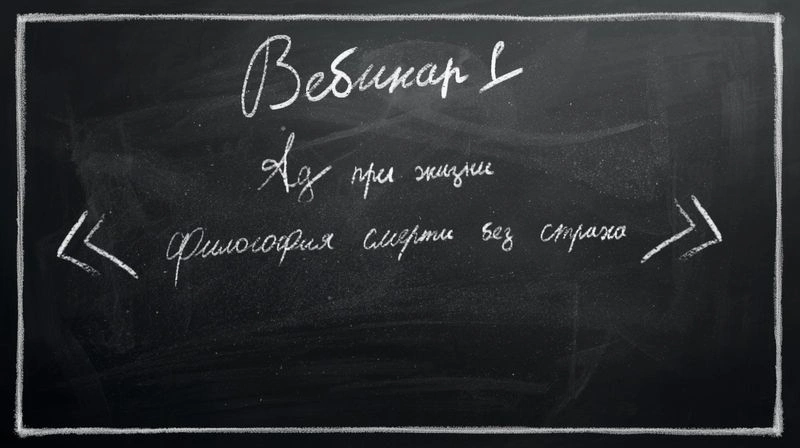 Вебинар 1
Ад при жизни
«Философия смерти без страха»